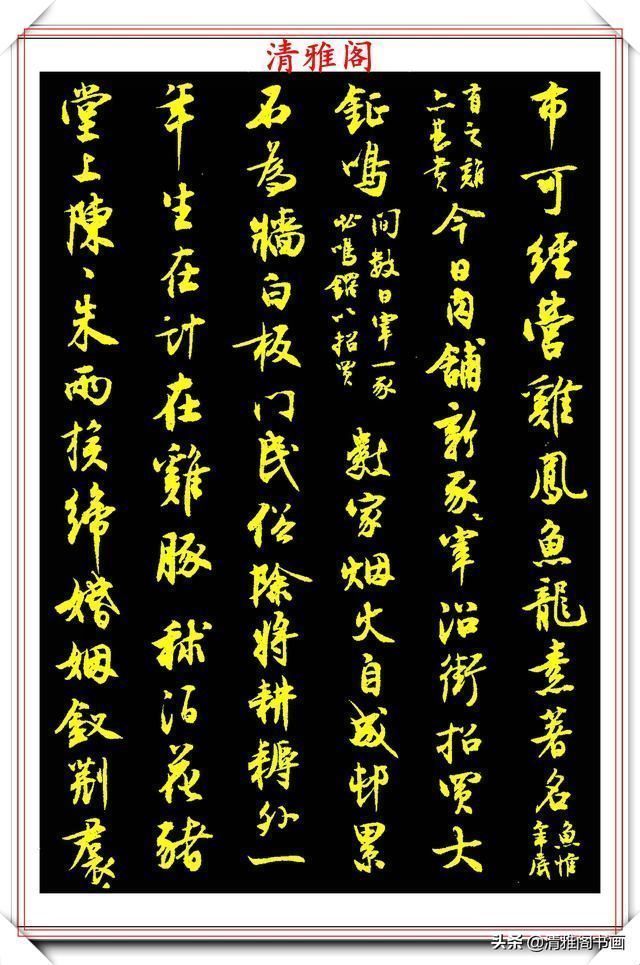 清雅阁
市可經營雞鳳魚龍素著名魚惟年底
有之雞亦甚貴今日肉舖新豕宰沿街招買大
鉦鳴間數日宰一豕必鳴鑼以招買數家烟火自成邨累
石為牆白板門民俗除將耕耨外一
年生在計在雞豚秫酒花豬
堂上陳〻朱兩族締婚姻釵荆裠〻
头条@清雅阁书画